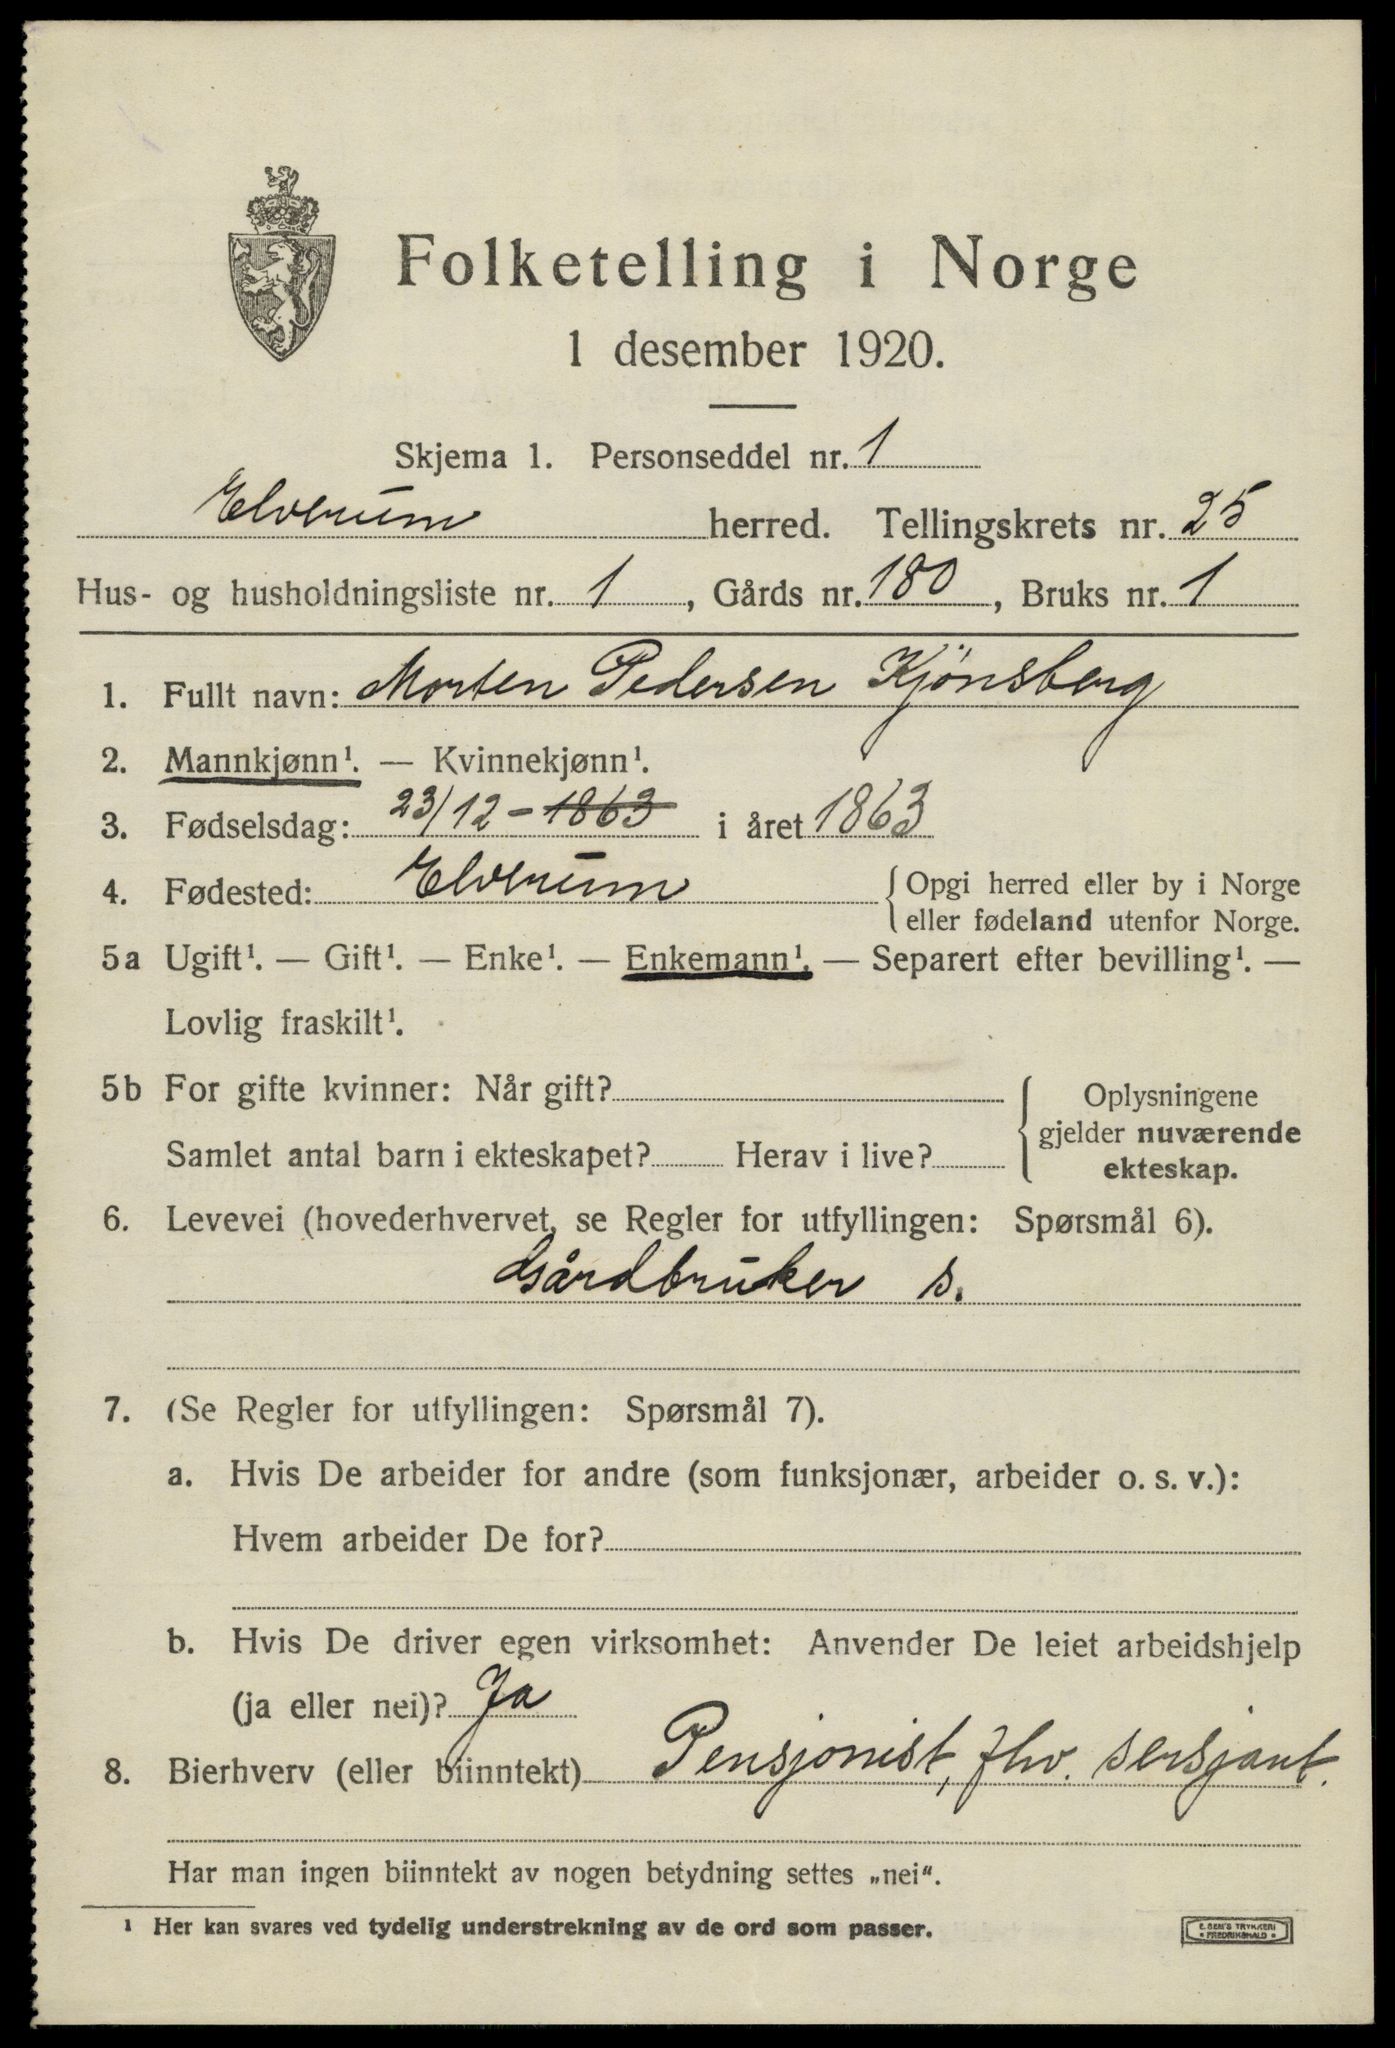 Folketelling i Norge
1 desember 1920.
Skjema 1. Personseddel nr. 1
Elverum herred. Tellingskrets nr. 25
Hus- og husholdningsliste nr. 1, Gårds nr. 180, Bruks nr. 1
1. Fullt navn: Morten Pedersen Kjönsberg
2. Mannkjønn¹. — Kvinnekjønn¹.
3. Fødselsdag: 23/12 - 1863 i året 1863
4. Fødested: Elverum {Opgi herred eller by i Norge
eller fødeland utenfor Norge.
5a Ugift¹. — Gift¹. — Enke¹. — Enkemann¹. — Separert efter bevilling¹. —
Lovlig fraskilt¹.
5b For gifte kvinner: Når gift?
Samlet antal barn i ekteskapet? Herav i live?
Oplysningene
gjelder nuværende
ekteskap.
6. Levevei (hovederhvervet, se Regler for utfyllingen: Spørsmål 6).
Gårdbruker s.
7. (Se Regler for utfyllingen: Spørsmål 7).
a. Hvis De arbeider for andre (som funksjonær, arbeider o. s. v.):
Hvem arbeider De for?
b. Hvis De driver egen virksomhet: Anvender De leiet arbeidshjelp
(ja eller nei)? Ja
8. Bierhverv (eller biinntekt) Pensjonist, fhv. sersjant.
Har man ingen biinntekt av nogen betydning settes „nei“.
¹ Her kan svares ved tydelig understrekning av de ord som passer.
E. SEM'S TRYKKERI
• FREDRIKSHALD •